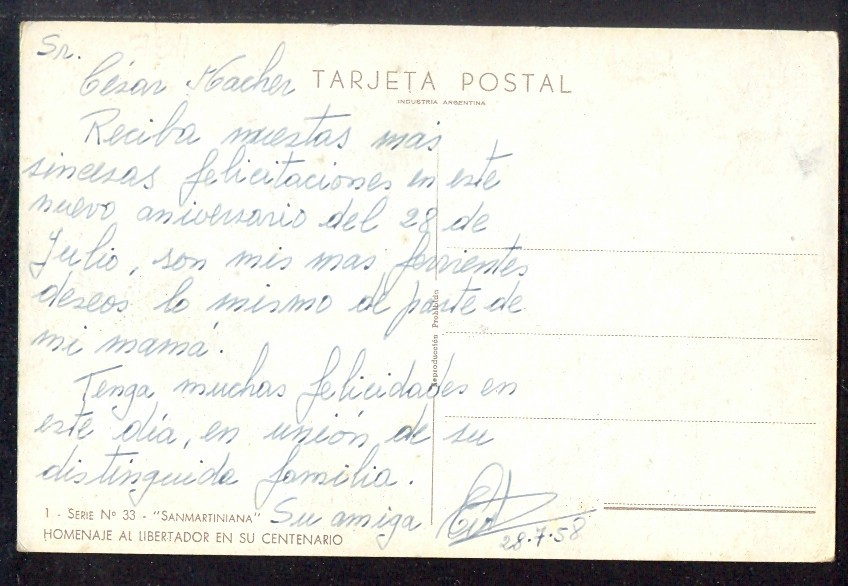 Sr.
César Kacher
TARJETA POSTAL
INDUSTRIA ARGENTINA
Reciba nuestas mas
sinceras felicitaciones en este
nuevo aniversario del 28 de
Julio, son mis mas fervientes
deseos lo mismo de parte de
mi mamá.
Tenga muchas felicidades en
este día, en unión de su
distinguida familia.
Su amiga
28.7.58
Reproducción Prohibida
1 - SERIE Nº 33 - "SANMARTINIANA"
HOMENAJE AL LIBERTADOR EN SU CENTENARIO